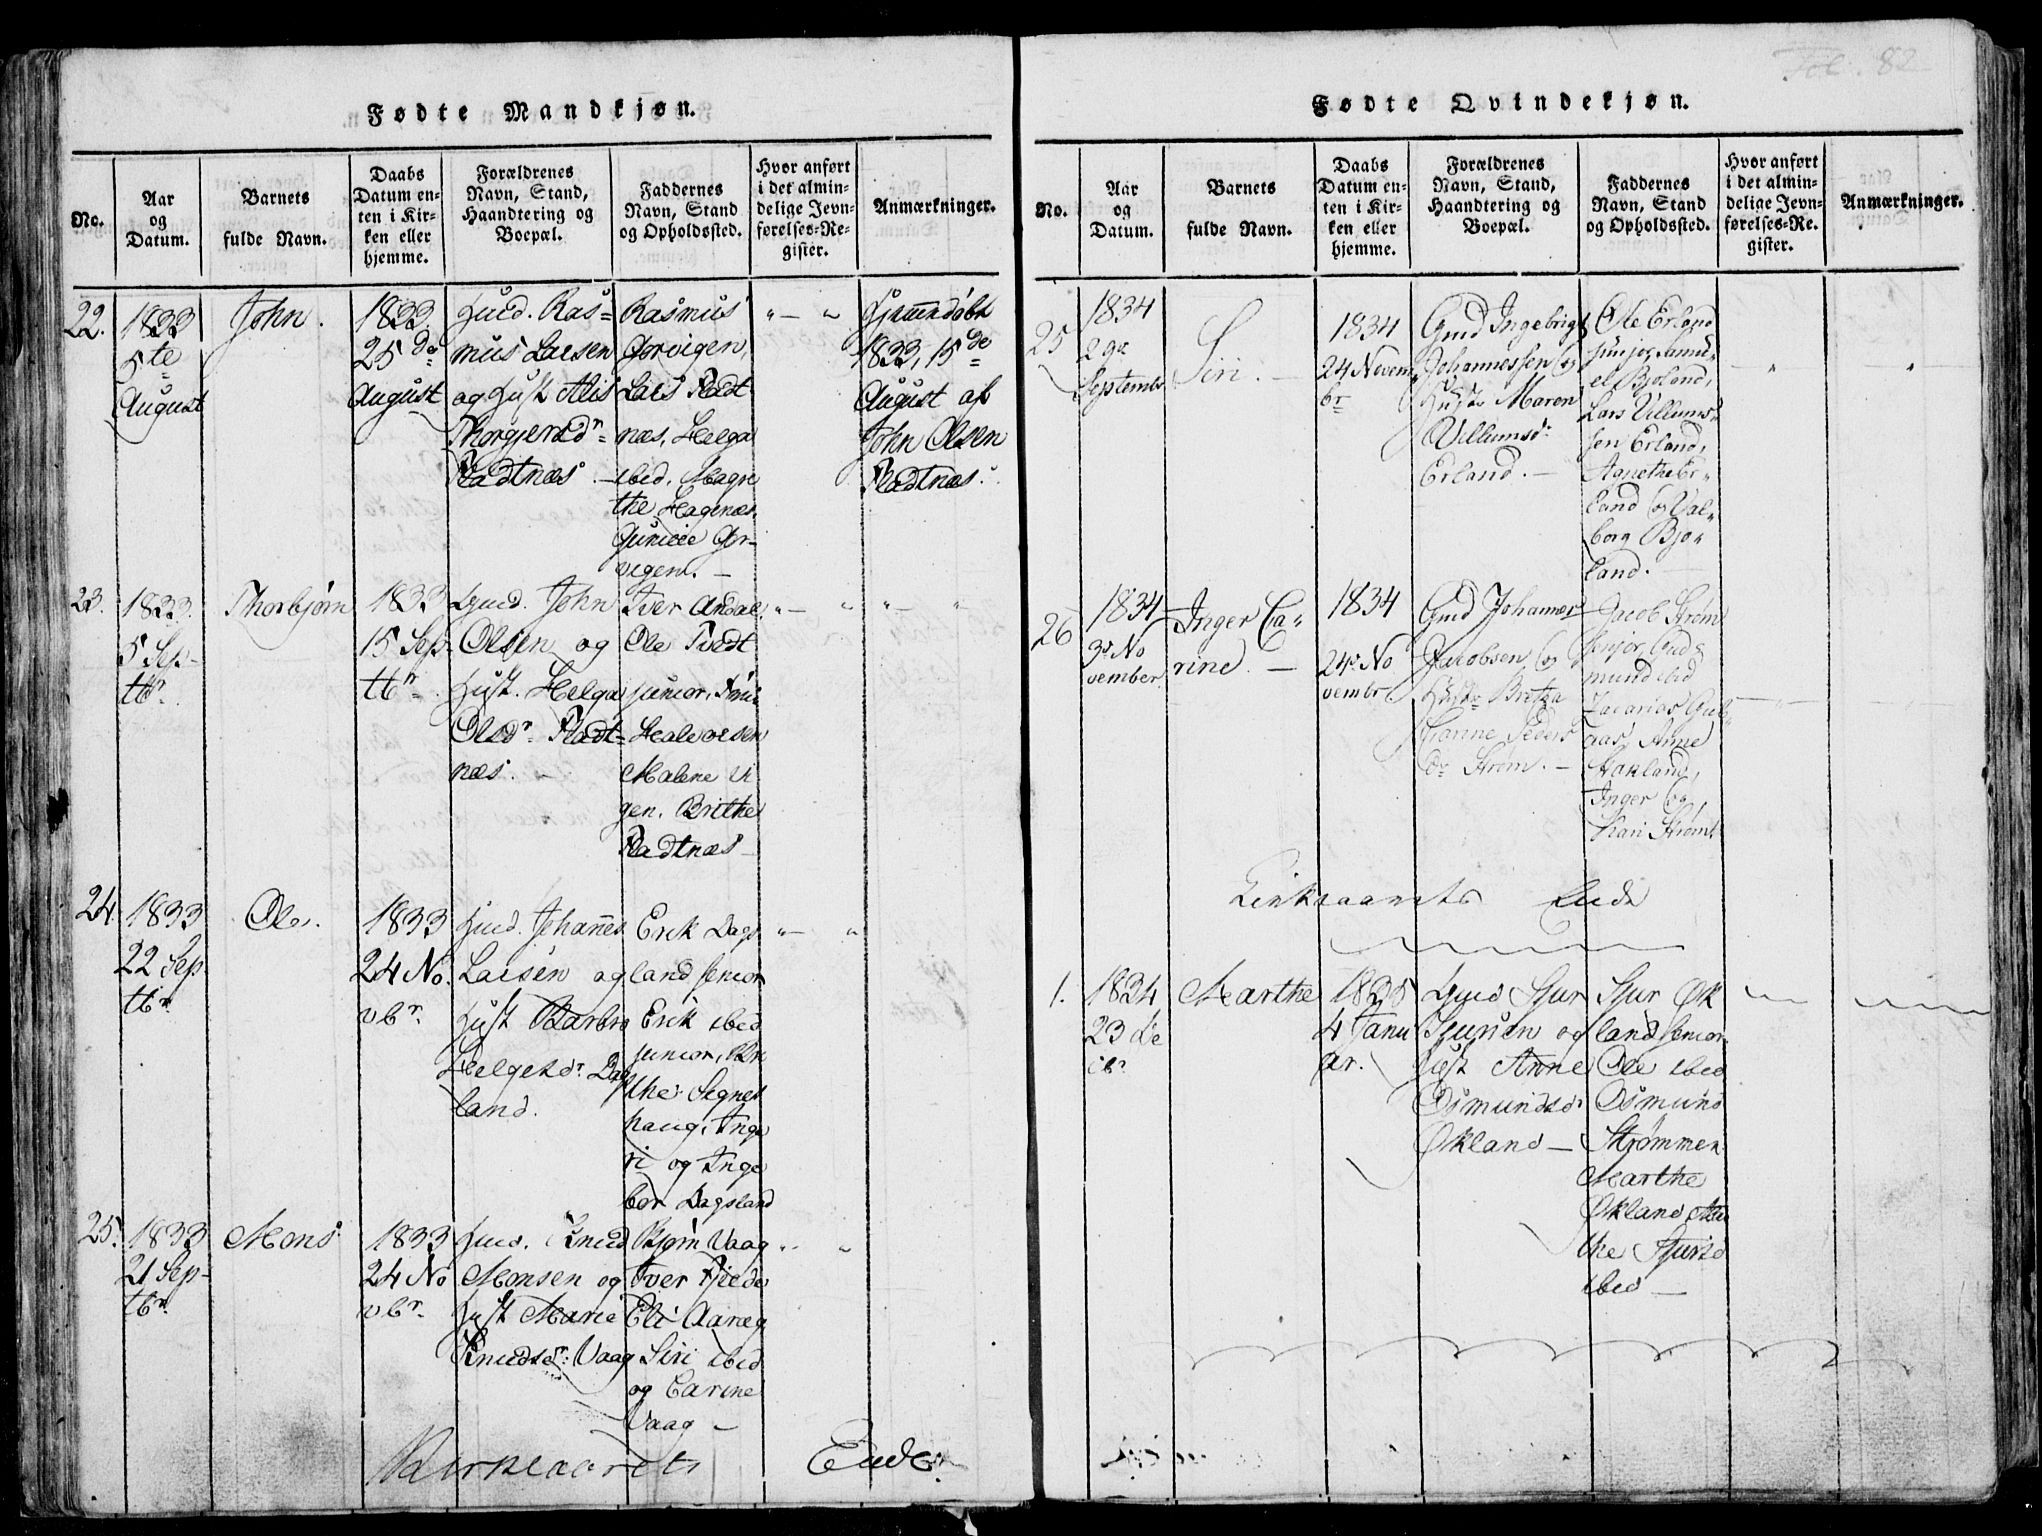 Fødte Mandkjøn.
No.
Aar
og
Datum.
Barnets
fulde Navn.
Daabs
Datum en-
ten i Kir-
ken eller
hjemme.
Forældrenes
Navn, Stand,
Haandtering og
Boepæl.
Faddernes
Navn, Stand
og Opholdssted.
Hvor anført
i det almin-
delige Jevn-
førelses-Re-
gister.
Anmærkninger.
22.
1833
5te
August
John.
1833
25de
August
Huusd. Ras=
mus Larsen
og Hust Alis
Thorgjersdr
Fladtnæs.
Rasmus
Gorvigen,
Lars Fladt
næs, Helga
ibid, Magre
the Hagenæs,
Gunild Gor-
vigen. -
Hjemmedøbt
1833, 15de
August af
John Olsen
Fladtnæs.
23.
1833.
5 Sep-
tbr.
Thorbjørn
1833
15 Sep-
tbr.
Huusd. John
Olsen og
Hust. Helga
Olsdr Fladt-
næs.
Iver Andal,
Ole Tvedt
junior,
Halvorsen
Malene Vi
gen, Brithe
Fladtnæs
24.
1833
22 Sep
tbr.
Ole.
1833
24 No
vbr.
Huusd. Johannes
Larsen og
Hust Barbro
Helgesdr. Dags
land.
Erik Dags
land senior
Erik ibid
junior, Bri
the Segnes
haug, Inge
ri og Inge
bor Dagsland
25.
1833
21 Sep-
tbr.
Mons
1833
24 No
vbr.
Huusd. Knud
Monsen og
Hust Marie
Knudsdr: Vaag
Bjørn Vaag
Iver Fjelde
Eli
Siri ibid
og Carine
Vaag -
Kirkeaarets Ende.
Fol. 82
Fødte Qvindekjøn.
No.
Aar
og
Datum.
Barnets
fulde Navn.
Daabs
Datum en-
ten i Kir-
ken eller
hjemme.
Forældrenes
Navn, Stand,
Haandtering og
Boepæl.
Faddernes
Navn, Stand
og Opholdssted.
Hvor anført
i det almin-
delige Jevn-
førelses-Re-
gister.
Anmærkninger.
25
1834
29de
Septembr
Siri. -
1834
24 Novem
br
Gmd Ingebrigt
Johannessen og
Hust: Maren
Villumsdr
Erland. -
Ole Erland
junior, Samu
el Bjoland,
Lars Villums
sen Erland,
Agnethe Er-
land og Val-
borg Bjo-
land.
26
1834
3de No
vember.
Inger Ca-
rine. -
1834
24de No
vembr
Gmd Johannes
Jacobsen og
Hustr Bretha
Hanne Peders
dr Strøm. -
Jacob Strøm
senior, Gud
mund ibid
Zacarias
Anne
Hakland,
Inger og
Kari Strøm.
Kirkeaarets Ende
1.
1834
23 De
cbr
Marthe
1835
4 Janu
ar.
Huusd Sjur
Sjursen og
Hust Anne
Osmundsdr
Økland -
Sjur Øk
land senior
Ole ibid
Osmund
Strømmen
Marthe
Økland Mar
the Sjursd
ibid -